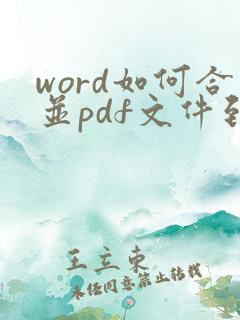 word如何合
並pdf文件到
王立東
未经同意禁止转载